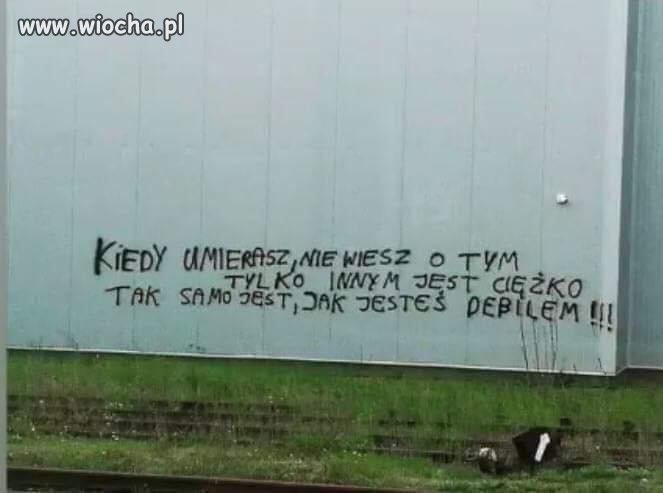 www.wiocha.pl
KIEDY UMIERASZ, NIE WIESZ O TYM
TYLKO INNYM JEST CIĘŻKO
TAK SAMO JEST, JAK JESTEŚ DEBILEM !!!